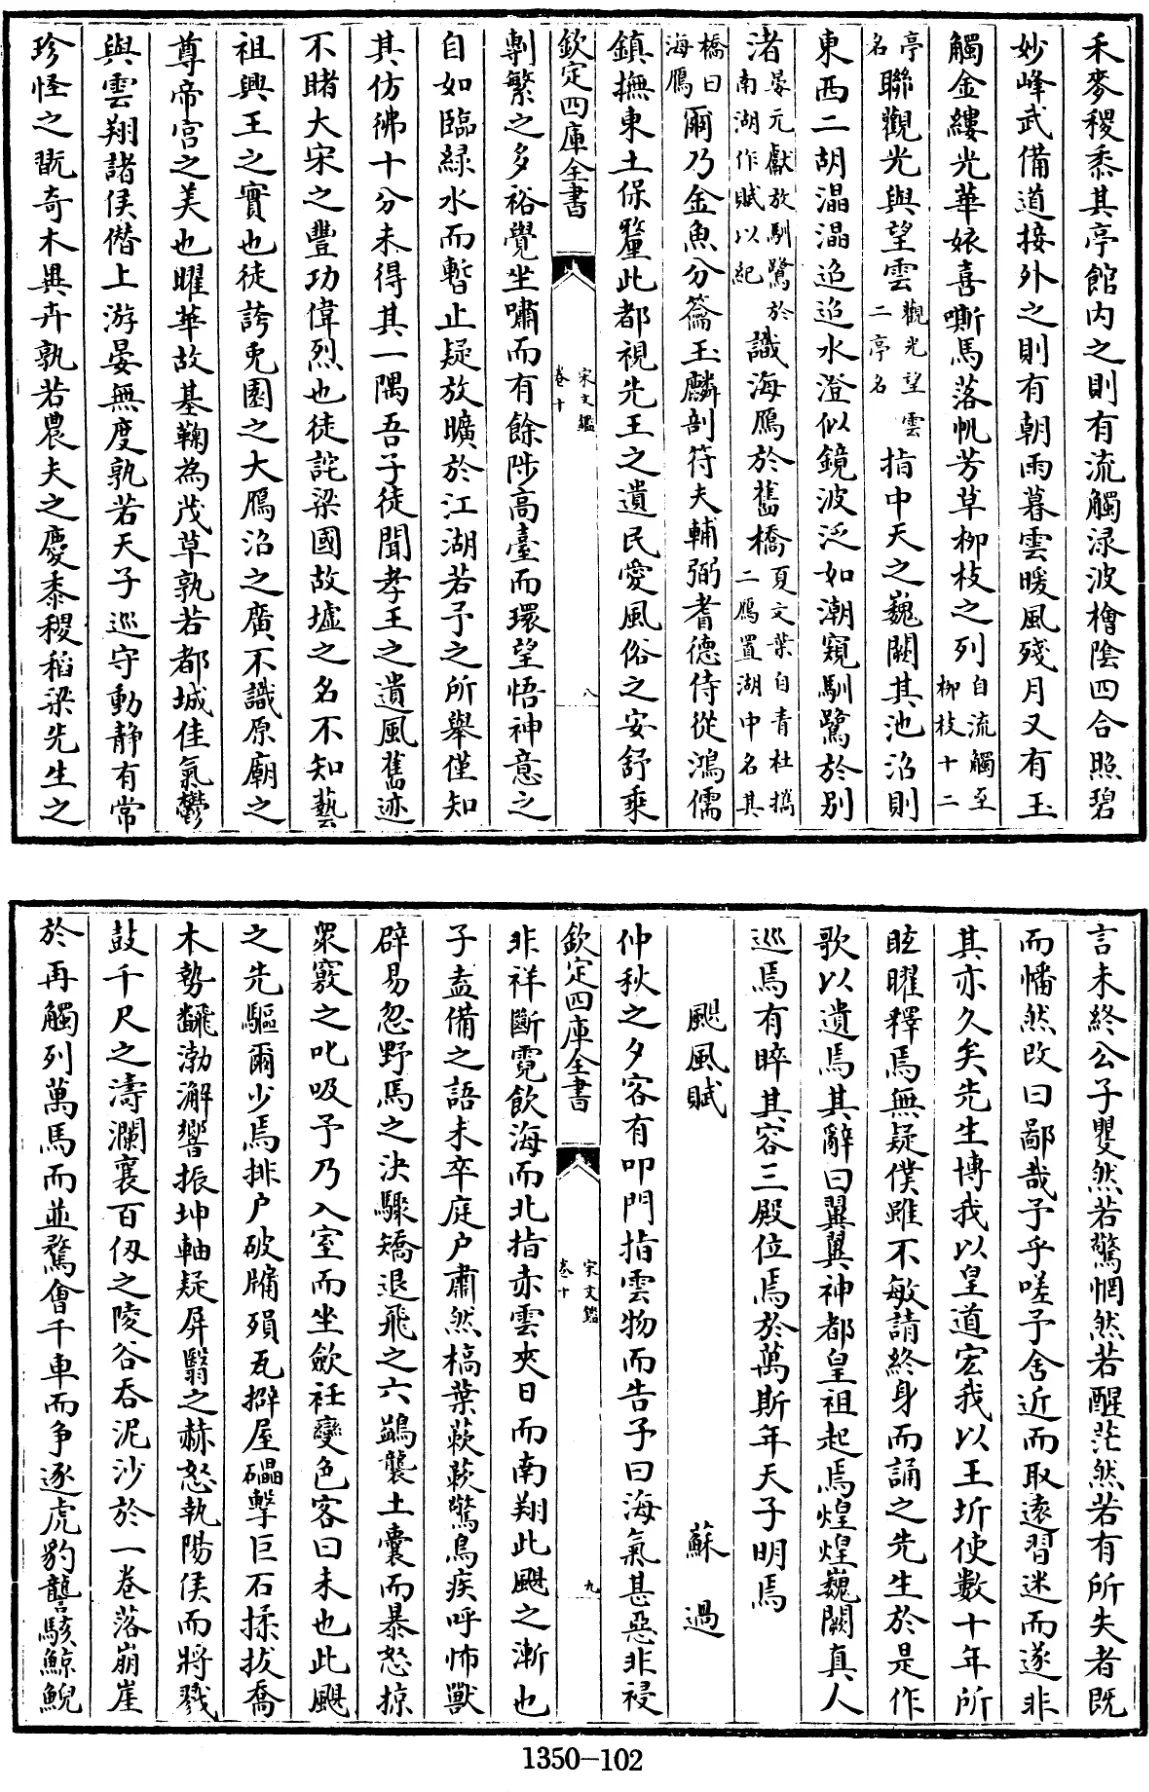 禾麥稷黍其亭館内之則有流觴渌波檜陰四合照碧
妙峰武備道接外之則有朝雨暮雲暖風殘月又有玉
觴金縷光華娭喜嘶馬落帆芳草柳枝之列自流觴至柳枝十二
亭名聯觀光與望雲觀光望雲二亭名指中天之巍闕其池沼則
東西二湖溫溫迢迢水澄似鏡波泛如潮窺馴鷺於别
渚晏元獻放馴鷺於南湖作賦以紀識海鴈於舊橋夏文莊自青杜攜二鴈置湖中名其
橋曰海鴈爾乃金魚分籥玉麟剖符夫輔弼耆德侍從鴻儒
鎮撫東土保釐此都視先王之遺民愛風俗之安舒乘
欽定四庫全書 宋文鑑卷十 八
剸繁之多裕覺坐嘯而有餘陟高臺而環望悟神意之
自如臨緑水而暫止疑放曠於江湖若予之所舉僅知
其仿彿十分未得其一隅吾子徒聞孝王之遺風舊迹
不睹大宋之豐功偉烈也徒詫梁國故墟之名不知藝
祖興王之實也徒誇兎園之大鴈沼之廣不識原廟之
尊帝宫之美也曜華故基鞠為茂草孰若都城佳氣鬱
與雲翔諸侯僭上游晏無度孰若天子巡守動静有常
珍怪之翫奇木異卉孰若農夫之慶黍稷稻粱先生之
言未終公子矍然若驚惘然若醒茫然若有所失者既
而幡然改曰鄙哉予乎嗟予舍近而取遠習迷而遂非
其亦久矣先生博我以皇道宏我以王圻使數十年所
眩曜釋焉無疑僕雖不敏請終身而誦之先生於是作
歌以遺焉其辭曰翼翼神都皇祖起焉煌煌巍闕真人
巡焉有睟其容三殿位焉於萬斯年天子明焉
颶風賦 蘇過
仲秋之夕客有叩門指雲物而告予曰海氣甚惡非祲
欽定四庫全書 宋文鑑卷十 九
非祥斷霓飲海而北指赤雲夾日而南翔此颶之漸也
子盍備之語未卒庭户肅然槁葉蔌蔌驚鳥疾呼怖獸
辟易忽野馬之決驟矯退飛之六鷁襲土囊而暴怒掠
衆竅之叱吸予乃入室而坐歛衽變色客曰未也此颶
之先驅爾少焉排户破牖殞瓦擗屋礧擊巨石揉拔喬
木勢翻渤澥響振坤軸疑屏翳之赫怒執陽侯而將戮
鼓千尺之濤瀾襄百仭之陵谷吞泥沙於一卷落崩崖
於再觸列萬馬而並騖會千車而争逐虎豹讋駭鯨鯢
1350-102